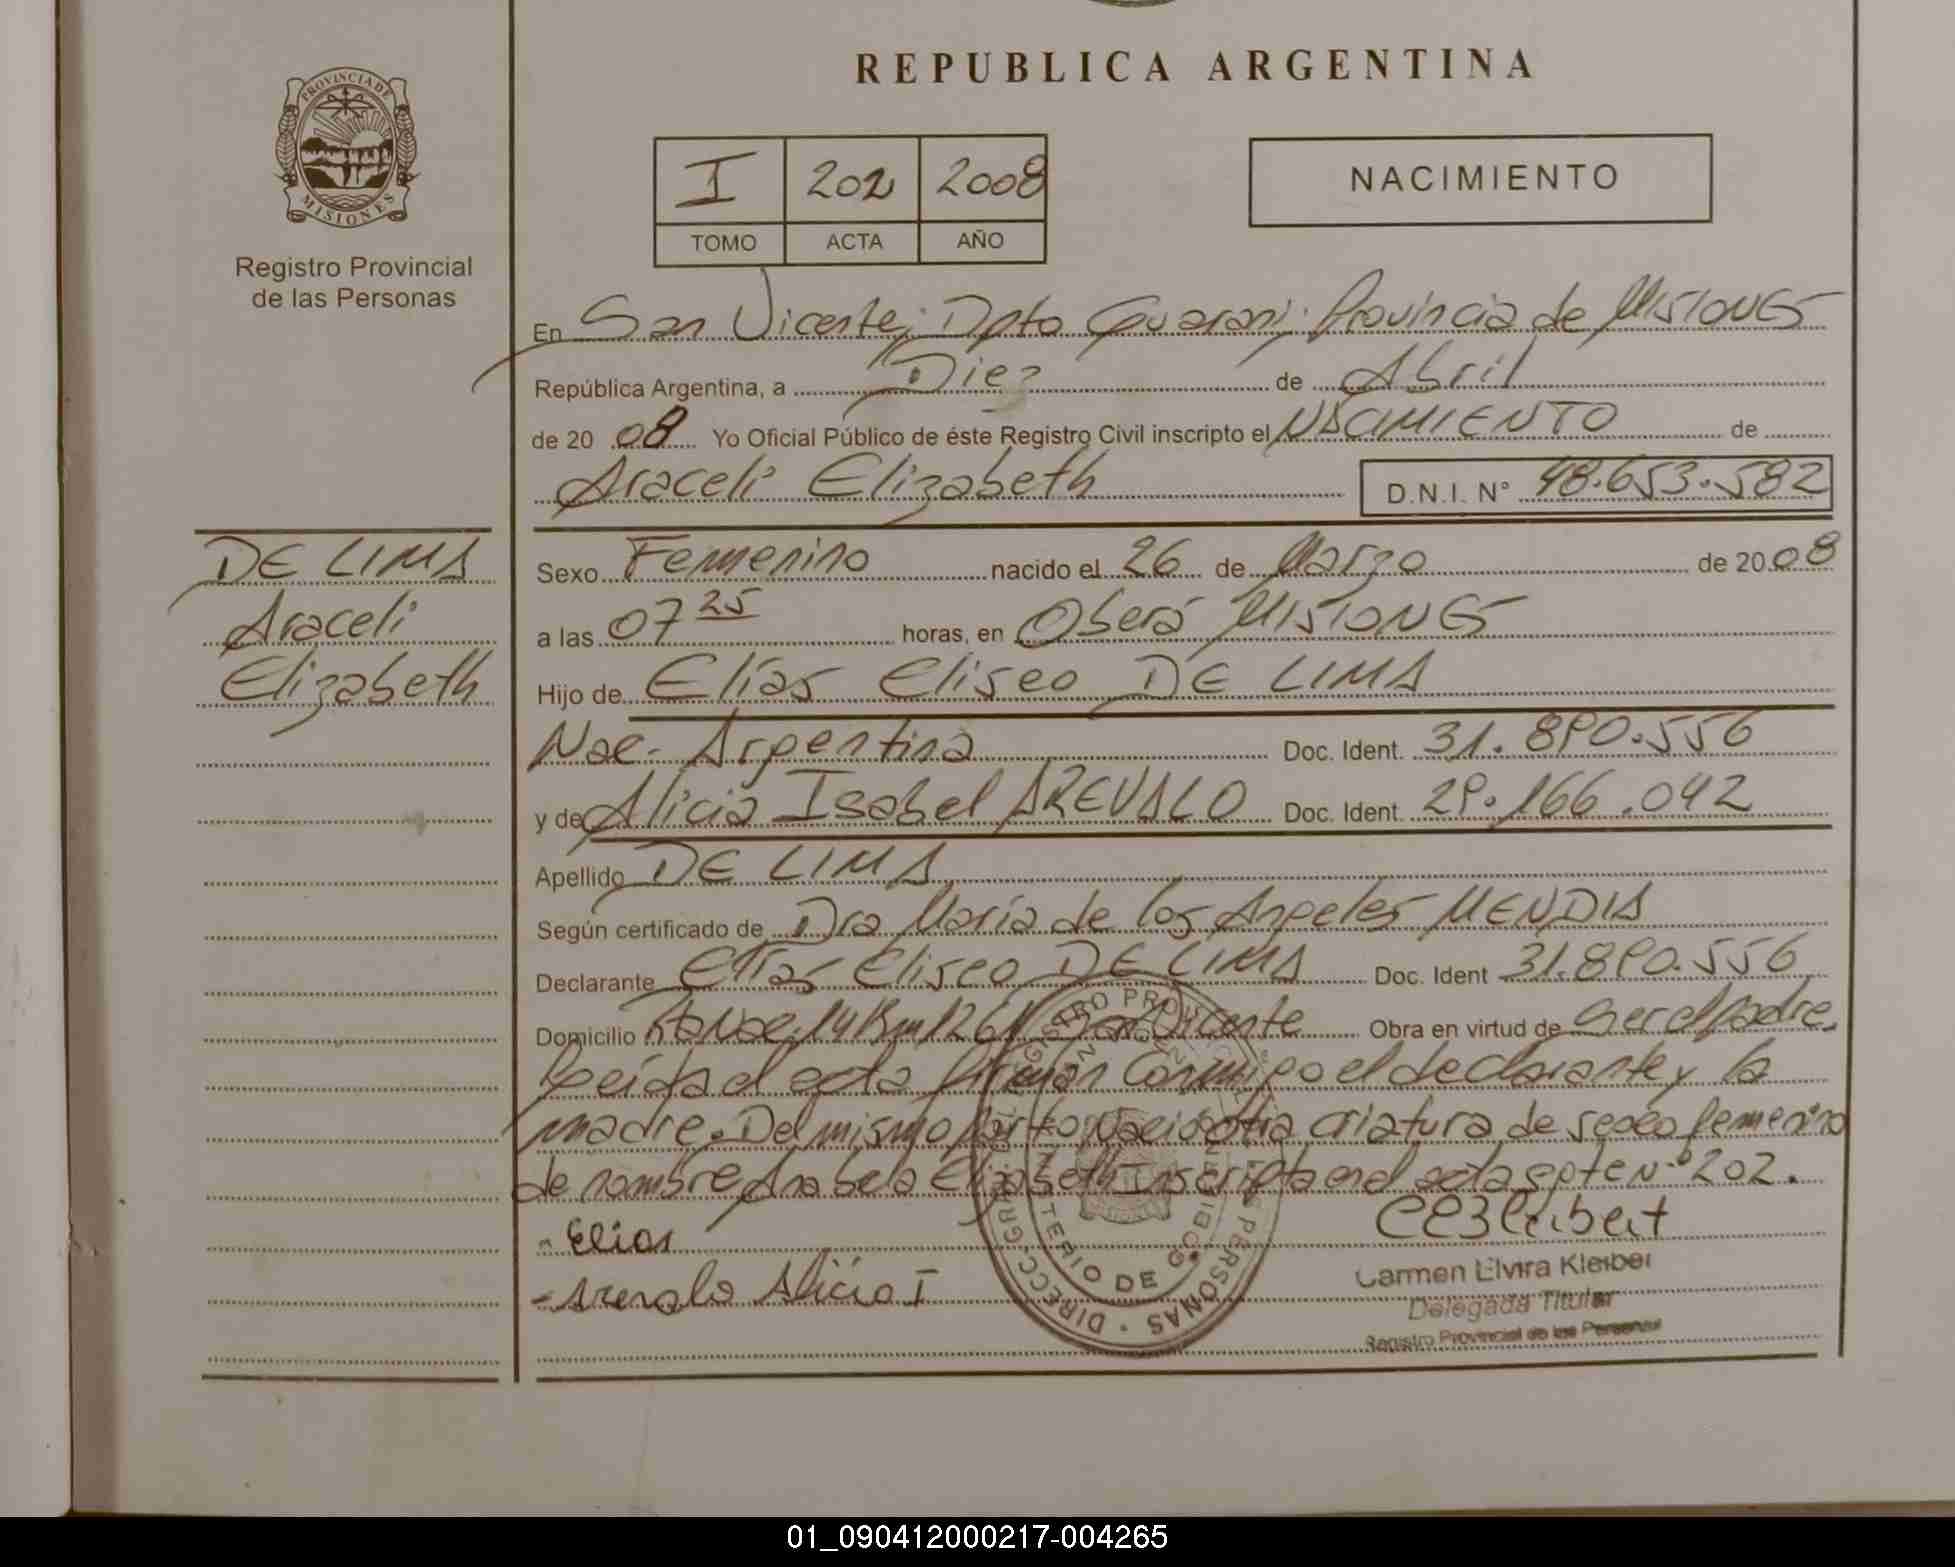 PROVINCIA DE
MISIONES
Registro Provincial
de las Personas
REPUBLICA ARGENTINA
I 202 2008
TOMO ACTA AÑO
NACIMIENTO
En San Vicente; Dpto Guaraní; Provincia de MISIONES
República Argentina, a Diez de Abril
de 2008 Yo Oficial Público de éste Registro Civil inscripto el NACIMIENTO de
Araceli Elizabeth D.N.I. N° 48.653.582
DE LIMA
Araceli
Elizabeth
Sexo Femenino nacido el 26 de Marzo de 2008
a las 07 25 horas, en Oberá MISIONES
Hijo de Elías Eliseo DE LIMA
Nac. Argentina Doc. Ident. 31.890.556
y de Alicia Isabel AREVALO Doc. Ident. 29.166.042
Apellido DE LIMA
Según certificado de Dra María de los Angeles MENDIA
Declarante Elías Eliseo DE LIMA Doc. Ident 31.890.556
Domicilio Rta Nac. 14 Km 1261 San Vicente Obra en virtud de Ser el padre.
Leída el acta firman Conmigo el declarante y la
madre. Del mismo parto Nació otra criatura de sexo femenino
de nombre Anabela Elizabeth Inscripta en el acta N° 202.
- Elias
- Arevalo Alicia I
Carmen Elvira Kleiber
Delegada Titular
Registro Provincial de las Personas
01_090412000217-004265